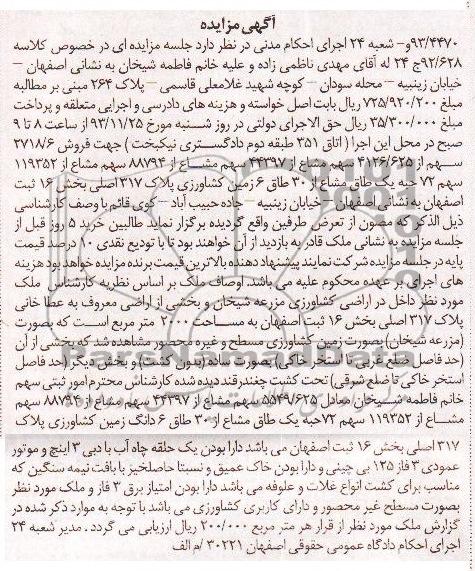 آگهی مزایده
۹۳/۴۴۷۰و– شعبه ۲۴ اجرای احکام مدنی در نظر دارد جلسه مزایده ای در خصوص کلاسه
۹۲/۶۲۸ج ۲۴ له آقای مهدی ناظمی زاده و علیه خانم فاطمه شیخان به نشانی اصفهان –
خیابان زینبیه – محله سودان – کوچه شهید غلامعلی قاسمی – پلاک ۲۶۴ مبنی بر مطالبه
مبلغ ۷۲۵/۹۲۰/۲۰۰ ریال بابت اصل خواسته و هزینه های دادرسی و اجرایی متعلقه و پرداخت
مبلغ ۳۵/۳۰۰/۰۰۰ ریال حق الاجرای دولتی در روز شنبه مورخ ۹۳/۱۱/۲۵ از ساعت ۸ تا ۹
صبح در محل این اجرا ( اتاق ۳۵۱ طبقه دوم دادگستری نیکبخت ) جهت فروش ۲۷۱۸/۶
سهم از ۴۱۲۶/۶۲۵ سهم مشاع از ۴۴۳۹۷ سهم مشاع از ۸۸۷۹۴ سهم مشاع از ۱۱۹۳۵۲
سهم ۷۲ حبه یک طاق مشاع از ۳۰ طاق ۶ زمین کشاورزی پلاک ۳۱۷ اصلی بخش ۱۶ ثبت
اصفهان به نشانی اصفهان – خیابان زینبیه – جاده حبیب آباد – کوی قائم با وصف کارشناسی
ذیل الذکر که مصون از تعرض طرفین واقع گردیده برگزار نماید طالبین خرید ۵ روز قبل از
جلسه مزایده به نشانی ملک قادر به بازدید از آن خواهند بود تا با تودیع نقدی ۱۰ درصد قیمت
پایه در جلسه مزایده شرکت نمایند پیشنهاد دهنده بالاترین قیمت برنده مزایده خواهد بود هزینه
های اجرای بر عهده محکوم علیه می باشد. اوصاف ملک بر اساس نظریه کارشناس : ملک
مورد نظر داخل در اراضی کشاورزی مزرعه شیخان و بخشی از اراضی معروف به عطا خانی
پلاک ۳۱۷ اصلی بخش ۱۶ ثبت اصفهان به مساحت ۷۲۰۰ متر مربع است که بصورت
(مزرعه شیخان) بصورت زمین کشاورزی مسطح و غیره محصور مشاهده شد که بخشی از آن
(حد فاصل ضلع غربی تا استخر خاکی) بصورت ساده (بدون کشت) و بخش دیگر (حد فاصل
استخر خاکی تا ضلع شرقی) تحت کشت چغندرقند دیده شده کارشناش محترم امور ثبتی سهم
خانم فاطمه شیخان معادل ۵۵۴۹/۶۲۵ سهم مشاع از ۴۴۳۹۷ سهم مشاع از ۸۸۷۹۴ سهم
مشاع از ۱۱۹۳۵۲ سهم ۷۲حبه یک طاق مشاع از ۳۰ طاق ۶ دانگ زمین کشاورزی پلاک
۳۱۷ اصلی بخش ۱۶ ثبت اصفهان می باشد دارا بودن یک حلقه چاه آب با دبی ۳ اینچ و موتور
عمودی ۳ فاز ۱۲۵ بی چینی و دارا بودن خاک عمیق و نسبتا حاصلخیز با بافت نیمه سنگین که
مناسب برای کشت انواع غلات و علوفه می باشد دارا بودن امتیاز برق ۳ فاز و ملک مورد نظر
بصورت مسطح غیر محصور و دارای کاربری کشاورزی می باشد با توجه به موارد ذکر شده در
گزارش ملک مورد نظر از قرار هر متر مربع ۲۰۰/۰۰۰ ریال ارزیابی می گردد . مدیر شعبه ۲۴
اجرای احکام دادگاه عمومی حقوقی اصفهان ۳۰۲۲۱ /م الف
ParsNamadData.com